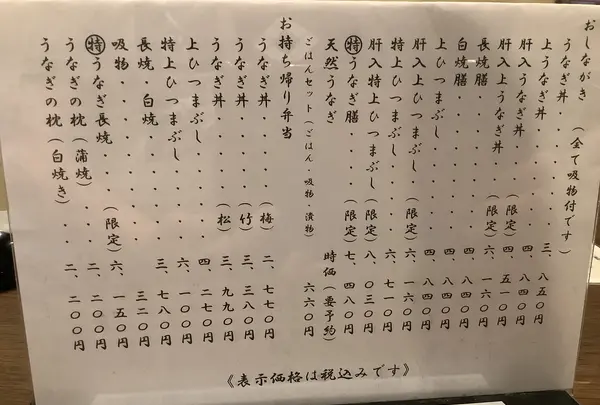 おしながき (全て吸物付です)
うなぎ丼・・・・・・・三、八五〇円
上うなぎ丼・・・・・・四、八四〇円
肝入うなぎ丼・・・(限定)
肝入上うなぎ丼・・(限定)六、一六〇円
長焼膳・・・・・・・・四、八四〇円
白焼膳・・・・・・・・四、八四〇円
上ひつまぶし・・・・・四、八四〇円
肝入上ひつまぶし・(限定)六、一六〇円
特上ひつまぶし・・・・六、七一〇円
肝入特上ひつまぶし(限定)八、〇三〇円
㊕うなぎ膳・・・・(限定)七、四八〇円
天然うなぎ 時価(要予約)
ごはんセット(ごはん・吸物・漬物) 六六〇円
お持ち帰り弁当
うなぎ丼・・・・・(梅)二、七七〇円
うなぎ丼・・・・・(竹)三、三八〇円
うなぎ丼・・・・・(松)三、九九〇円
上ひつまぶし・・・・・四、二七〇円
特上ひつまぶし・・・・六、一〇〇円
長焼・白焼・・・・・・三、七八〇円
吸物・・・・・・・・・三二〇円
㊕うなぎ長焼・・・(限定)六、一五〇円
うなぎの枕(蒲焼)・・・二、二〇〇円
うなぎの枕(白焼き)・・二、二〇〇円
《表示価格は税込みです》